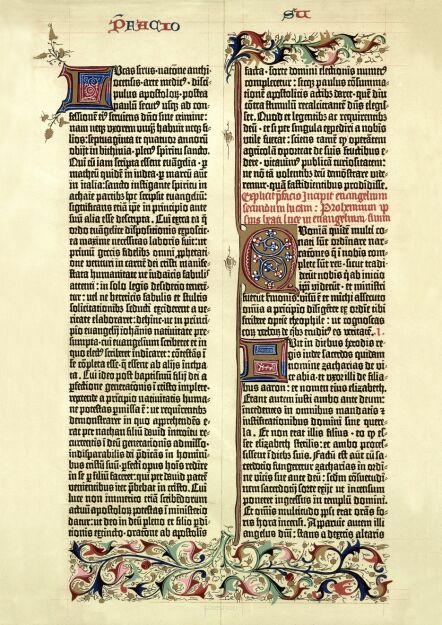 P̄FACIO
SU
Lucas sirus · natione anthi-
ocensis · arte medic⁹ · disci-
pulus apostolor · postea
paulū secut⁹ usq ad con-
fessionē ei⁹ serviens dño sine crimine :
nam neq uxorem unq̄ habuit neq fi-
lios : septuaginta et quatuor annorū
obiit in bithinia · plen⁹ spiritu sancto.
Qui cū iam scripta essent euāgelia · p
matheū quidē in iudea · p marcū aūt
in italia : sancto instigante spiritu in
achaie partib⁹ hoc scripsit euangeliū ·
significans etiā ip̄e in principio ante
suū alia esse descripta. Cui extra ea q̄
ordo euāgelice dispositionis exposcit ·
ea maxime necessitas laboris fuit : ut
primū grecis fidelib⁹ omni prophetati-
one venturi in carnē dei cristi manife-
stata humanitate · ne iudaicis fabul̄
attenti : in solo legis desiderio tenerē-
tur : vel ne hereticis fabulis et stultis
sollicitationib⁹ seducti excideret a ve-
ritate elaboraret : dehinc · ut in princi-
pio euangelij iohānis nativitate pre-
sumpta · cui euangelium scriberet et in
quo elect⁹ scriberet indicaret : cōtestās ī
se cōpleta esse · q̄ essent ab alijs inchoa-
ta. Cui ideo post baptismū filij dei a
pfectione generationis ī cristo implete
repetende a principio nativitatis huma-
ne potestas pmissa ē : ut requirentib⁹
demonstraret in quo apprehendēs e-
rat per nathan filiū david introitu re-
currentis ī deū generationis admisso ·
indispabilis dei pdicās in homini-
bus cristū suū · pfecti opus hoīs redire
in se p filiū faceret : qui per david patrē
venientibus iter pbebat in cristo. Cui
luce non immerito etiā scribendorum
actuū apostolor potestas ī ministerio
datur : ut deo in deū pleno et filio pdi-
tionis extincto · oratione ab apostolis
facta · sorte domini electionis numer⁹
compleretur : sicq paulus cōsumma-
tionē apostolicis actib⁹ daret · quē diu
cōtra stimulū recalcitrantē dñs elegis-
set. Quod et legentib⁹ ac requirentib⁹
deū · et si per singula expediri a nobis
utile fuerat : sciens tamē q̄ operantem
agricolā oporteat de suis fructibus e-
dere · vitavim⁹ publicā curiositatem :
ne nō tā volentib⁹ deū demōstrare vide-
remur · quā fastidientibus prodidisse.
Explicit pfacio Incipit evangelium
secundū lucam : Prohemium ip-
sius beati luce in evangelium suum
Quoniā quidē multi co-
nati sūt ordinare nar-
rationes q̄ in nobis com-
plete sūt reꝝ · sicut tradi-
derūt nobis q̄ ab inicio
ip̄i viderūt · et ministri
fuerūt sermonis : visū ē et michi assecuto
omīa a principio diligenter ex ordīe tibi
scribere optīe theophile : ut cognoscas
eoꝝ verboꝝ de q̄b⁹ erudit⁹ es veritatē. I.
Fuit in diebus herodis re-
gis iudee sacerdos quidam
nomine zacharias de vi-
ce abia · et uxor illi de filia-
bus aaron : et nomen eius elizabeth.
Erant autem iusti ambo ante deum :
incedentes in omnibus mandatis et
iustificationibus domini sine quere-
la. Et non erat illis filius · eo q̄ es-
set elizabeth sterilis : et ambo proces-
sissent ī dieb⁹ suis. Factū est aūt cū sa-
cerdotio fungeretur zacharias in ordi-
ne vicis sue ante deū : scdm cōsuetudi-
nem sacerdotij sorte exijt ut incensum
poneret ingressus in templū domini.
Et omīs multitudo pli erat orās fo-
ris hora incensi. Apparuit autem illi
angelus dñi : stans a dextris altaris